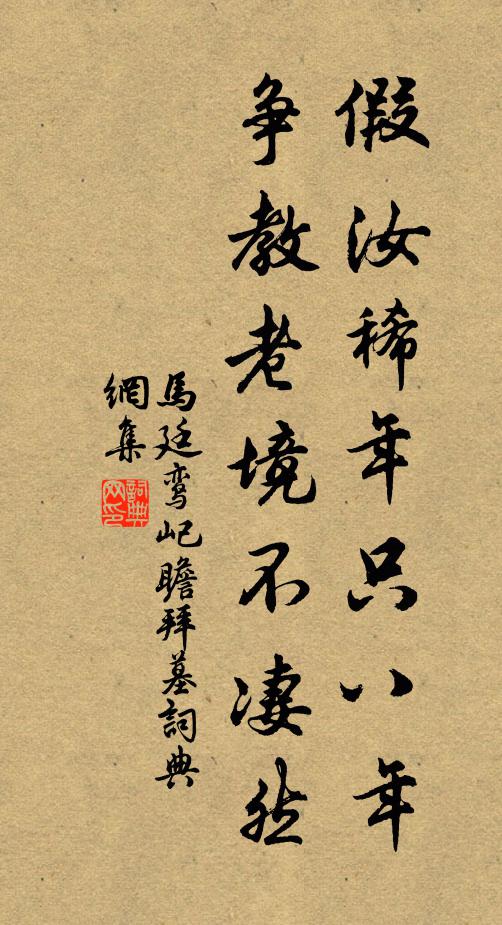 假汝稀年只八年
争教老境不凄然
馬廷鸾屺瞻拜墓詞典
網集
詞典
网印